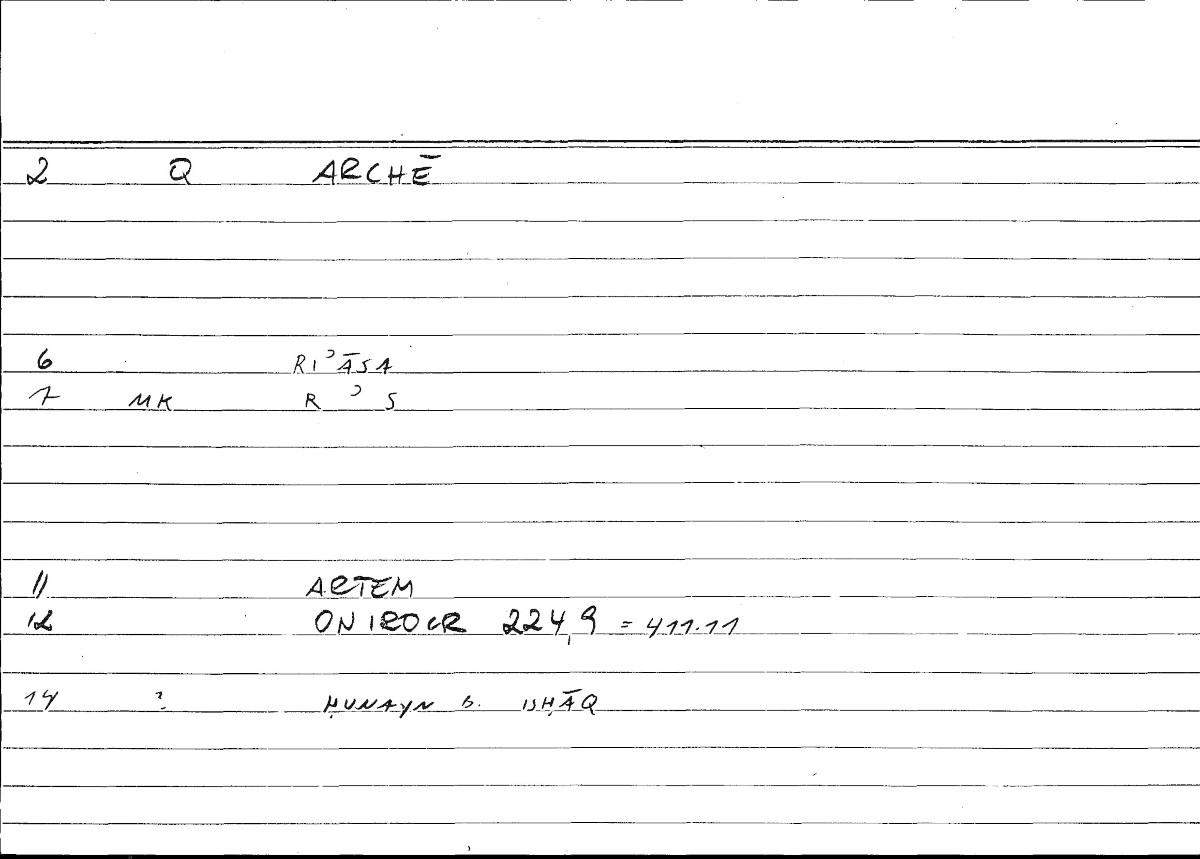 2 Q ARCHĒ
6 RIʾĀSA
7 MK R ʾ S
11 ARTEM
12 ONIROCR 224,9 = 411.11
14 ? ḤUNAYN B. ISḤĀQ